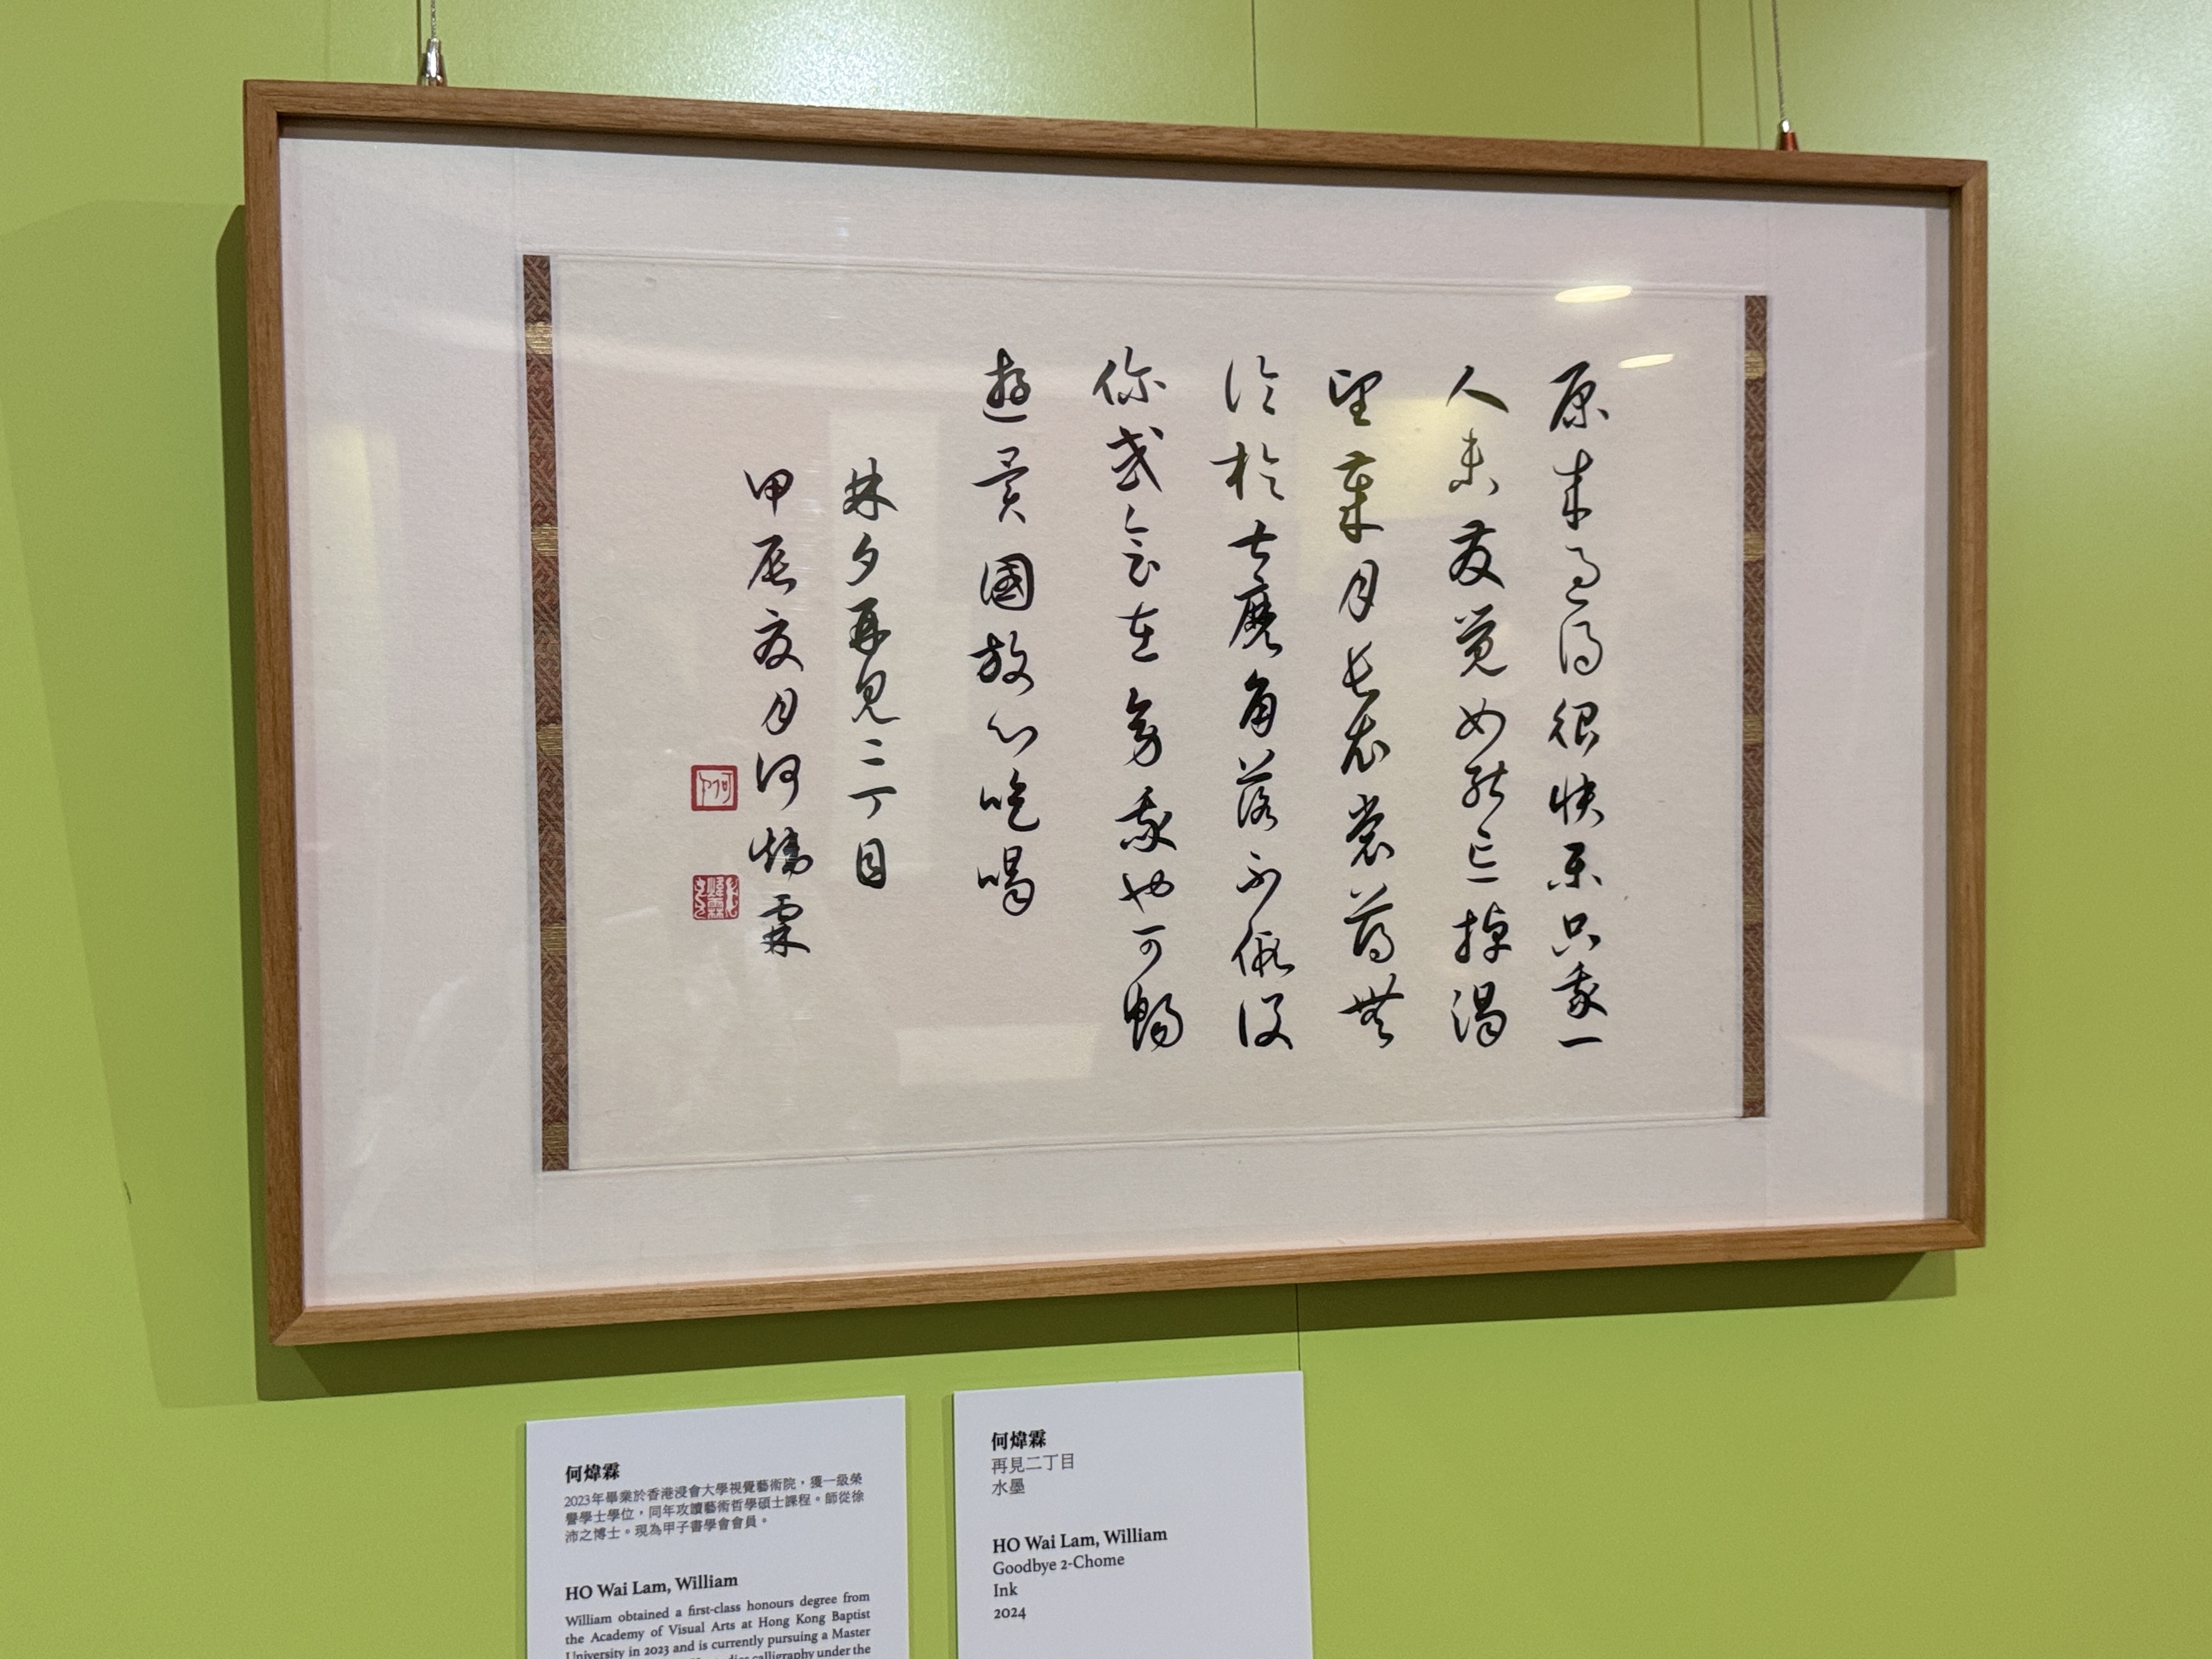 原來過得很快樂只我一
人未發覺如能忘掉渴
望歲月長衣裳薄無
論於甚麼角落不假設
你或會在旁我也可暢
遊異國放心吃喝
林夕再見二丁目
甲辰夏月何煒霖
何煒霖
2023年畢業於香港浸會大學視覺藝術院，獲一級榮
譽學士學位，同年攻讀藝術哲學碩士課程。師從徐
沛之博士。現為甲子書學會會員。
HO Wai Lam, William
William obtained a first-class honours degree from
the Academy of Visual Arts at Hong Kong Baptist
University in 2023 and is currently pursuing a Master
calligraphy under the
何煒霖
再見二丁目
水墨
HO Wai Lam, William
Goodbye 2-Chome
Ink
2024